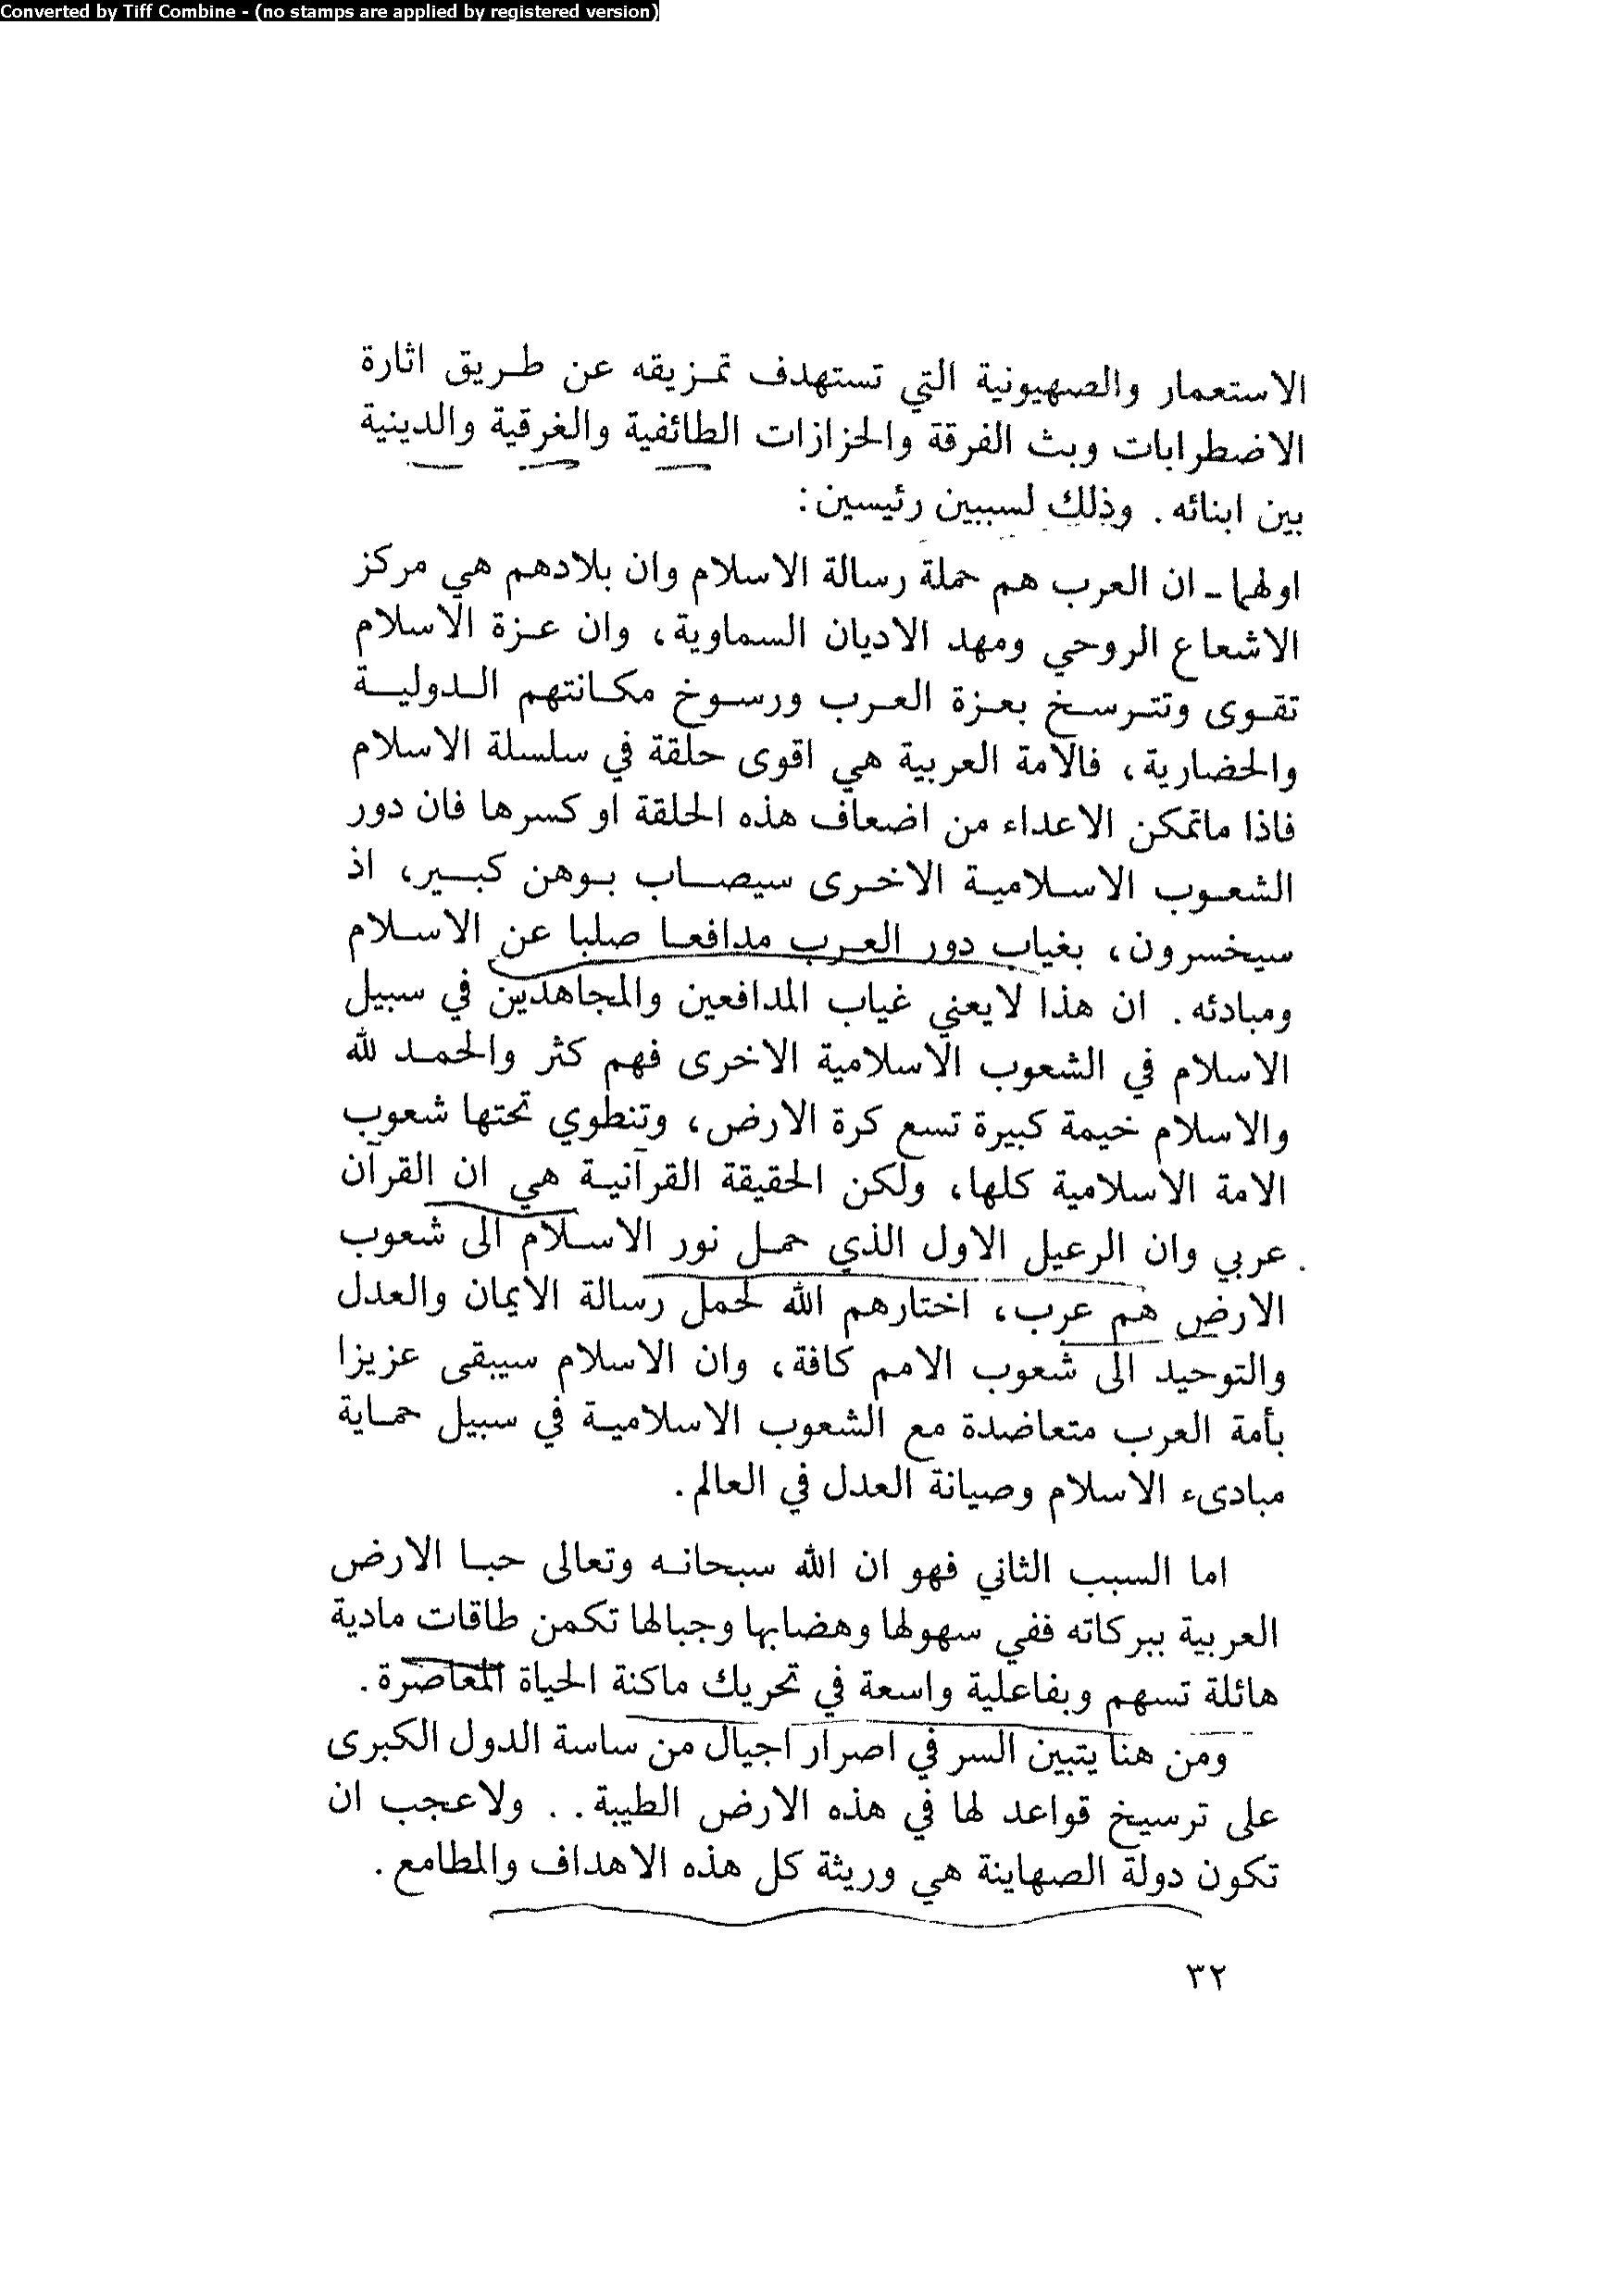 Converted by Tiff Combine - (no stamps are applied by registered version)
الاستعمار والصهيونية التي تستهدف تمزيقه عن طريق اثارة
الاضطرابات وبث الفرقة والحزازات الطائفية والغرقية والدينية
بين ابنائه . وذلك لسببين رئيسين :
اولهما - ان العرب هم حملة رسالة الاسلام وان بلادهم هي مركز
الاشعاع الروحي ومهد الاديان السماوية ، وان عزة الاسلام
تقوى وتترسخ بعزة العرب ورسوخ مكانتهم الدولية
والحضارية ، فالامة العربية هي اقوى حلقة في سلسلة الاسلام
فاذا ماتمكن الاعداء من اضعاف هذه الحلقة او كسرها فان دور
الشعوب الاسلامية الاخرى سيصاب بوهن كبير، اذ
سيخسرون ، بغياب دور العرب مدافعا صلبا عن الاسلام
ومبادئه . ان هذا لايعني غياب المدافعين والمجاهدين في سبيل
الاسلام في الشعوب الاسلامية الاخرى فهم كثر والحمد لله
والاسلام خيمة كبيرة تسع كرة الارض ، وتنطوي تحتها شعوب
الامة الاسلامية كلها، ولكن الحقيقة القرآنية هي ان القرآن
عربي وان الرعيل الاول الذي حمل نور الاسلام الى شعوب
الارض هم عرب ، اختارهم الله لحمل رسالة الايمان والعدل
والتوحيد الى شعوب الامم كافة ، وان الاسلام سيبقى عزيزا
بأمة العرب متعاضدة مع الشعوب الاسلامية في سبيل حماية
مبادىء الاسلام وصيانة العدل في العالم .
اما السبب الثاني فهو ان الله سبحانه وتعالى حبا الارض
العربية ببركاته ففي سهولها وهضابها وجبالها تكمن طاقات مادية
هائلة تسهم وبفاعلية واسعة في تحريك ماكنة الحياة المعاصرة .
ومن هنا يتبين السر في اصرار اجيال من ساسة الدول الكبرى
على ترسيخ قواعد لها في هذه الارض الطيبة . . ولاعجب ان
تكون دولة الصهاينة هي وريثة كل هذه الاهداف والمطامع .
٣٢